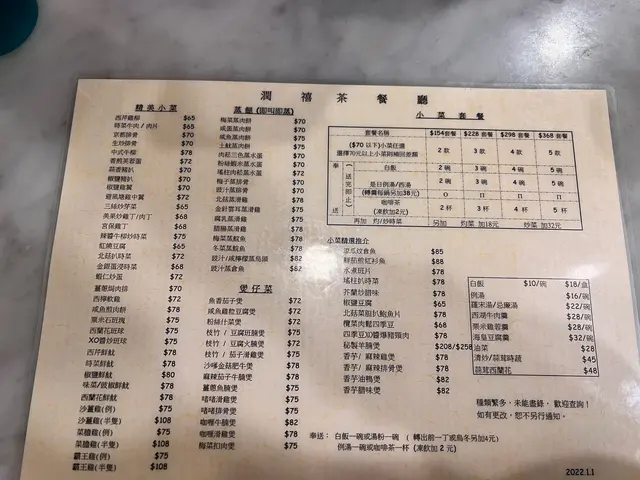 潤禧茶餐廳
精美小菜
西芹雞柳 $65
時菜牛肉/肉片 $65
京都排骨 $70
生炒排骨 $70
中式牛柳 $78
香煎芙蓉蛋 $72
蒜香豬扒 $70
椒鹽豬扒 $70
椒鹽雞翼 $70
避風塘雞中翼 $72
三絲炒芽菜 $65
美果炒雞丁/肉丁 $68
宮保雞丁 $68
辣醬牛柳炒時菜 $75
紅燒豆腐 $65
北菇扒時菜 $72
金銀蛋浸時菜 $68
蝦仁炒蛋 $72
薑蔥焗肉排 $70
西檸軟雞 $72
咸魚煎肉餅 $78
粟米石班塊 $75
西蘭花班球 $75
XO醬炒班球 $75
西芹鮮魷 $78
時菜鮮魷 $78
椒鹽鮮魷 $80
味菜/豉椒鮮魷 $78
西蘭花鮮魷 $78
沙薑雞(例) $75
沙薑雞(半隻) $108
菜膽雞(例) $75
菜膽雞(半隻) $108
霸王雞(例) $75
霸王雞(半隻) $108
蒸餸(即叫即蒸)
梅菜蒸肉餅 $70
咸蛋蒸肉餅 $70
咸魚蒸肉餅 $70
土魷蒸肉餅 $75
肉鬆三色蒸水蛋 $70
粉絲蝦米蒸水蛋 $70
瑤柱肉粒蒸水蛋 $72
梅子蒸排骨 $70
豉汁蒸排骨 $70
北菇蒸滑雞 $75
金針雲耳蒸滑雞 $75
腐乳蒸滑雞 $75
腊腸蒸滑雞 $78
梅菜蒸鯇魚 $78
冬菜蒸鯇魚 $78
豉汁/咸檸檬蒸烏頭 $82
豉汁蒸倉魚 $82
煲仔菜
魚香茄子煲 $72
咸魚雞粒豆腐煲 $72
粉絲什菜煲 $72
枝竹/豆腐班腩煲 $75
枝竹/豆腐火腩煲 $72
枝竹/茄子滑雞煲 $75
沙嗲金菇肥牛煲 $75
麻辣茄子牛腩煲 $75
薑蔥魚腩煲 $75
啫啫滑雞煲 $75
啫啫排骨煲 $75
咖喱牛腩煲 $82
咖喱滑雞煲 $78
梅菜扣肉煲 $75
小菜套餐
套餐名稱 $154套餐 $228套餐 $298套餐 $368套餐
($70以下)小菜任選
選擇70元以上小菜則補回差額 2款 3款 4款 5款
奉送(送完即止)
白飯 2碗 3碗 4碗 5碗
是日例湯/西湯 2碗 3碗 4碗 5碗
咖啡茶
(凍飲加2元) 2杯 3杯 4杯 5杯
再加 灼/炒時菜 另加 灼菜 加18元 炒菜 加32元
小菜精選推介
$85
鮮茄煎紅衫魚 $88
水煮班片 $78
芥蘭炒腊味 $78
椒鹽豆腐 $65
北菇菜膽扒鮑魚片 $78
欖菜肉鬆四季豆 $68
四季豆XO醬爆豬頸肉 $78
秘製羊腩煲 $208/$258
香芋/麻辣雞煲 $78
香芋/麻辣排骨煲 $78
香芋油鴨煲 $82
香芋腊味煲 $82
白飯 $10/碗 $18/盒
例湯 $16/碗
羅宋湯/忌廉湯 $22/碗
西湖牛肉羹 $28/碗
粟米雞蓉羹 $28/碗
海皇豆腐羹 $32/碗
油菜 $28
清炒/蒜茸時蔬 $45
蒜茸西蘭花 $48
種類繁多,未能盡錄,歡迎查詢!
如有更改,恕不另行通知。
奉送: 白飯一碗或湯粉一碗 (轉出前一丁或烏冬另加4元)
例湯一碗或咖啡茶一杯 (凍飲加2元)
2022.1.1